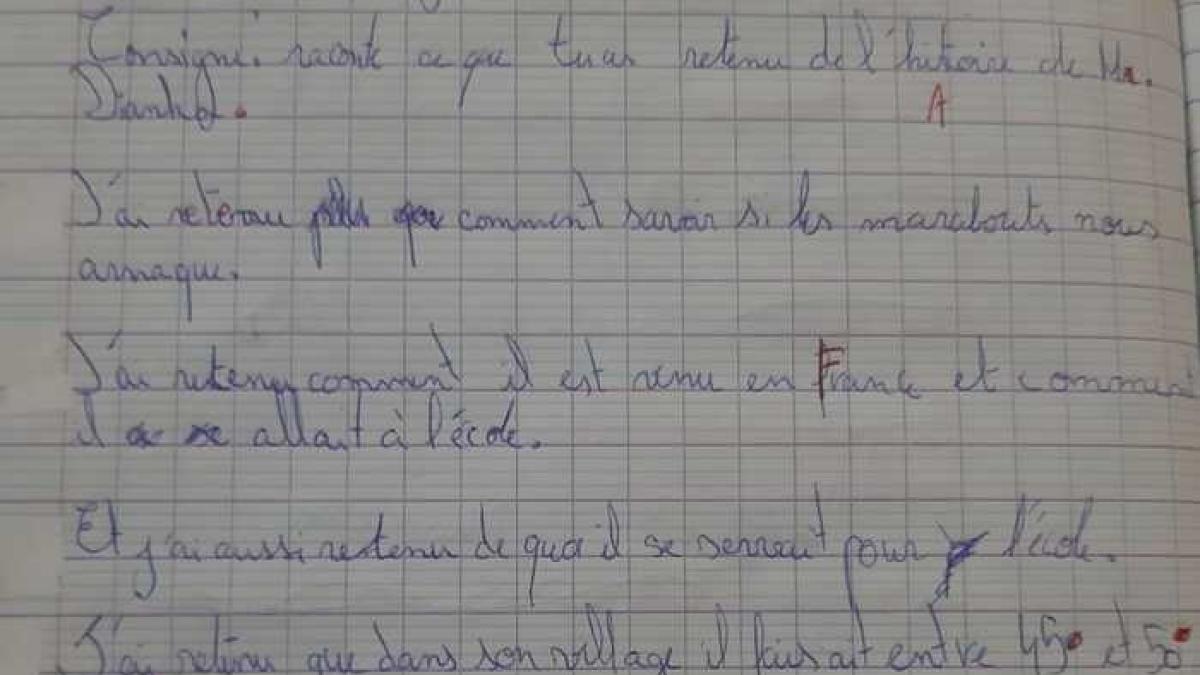 Consigne: raconte ce que tu as retenu de l'hitoire de Mr.
A
J'ai retenu comment savoir si les marabouts nous
arnaque.
J'ai retenu comment il est venu en France et comment
il allait à l'école.
Et j'ai aussi retenu de quoi il se servait pour l'école.
J'ai retenu que dans son village il faisait entre 45° et 50°